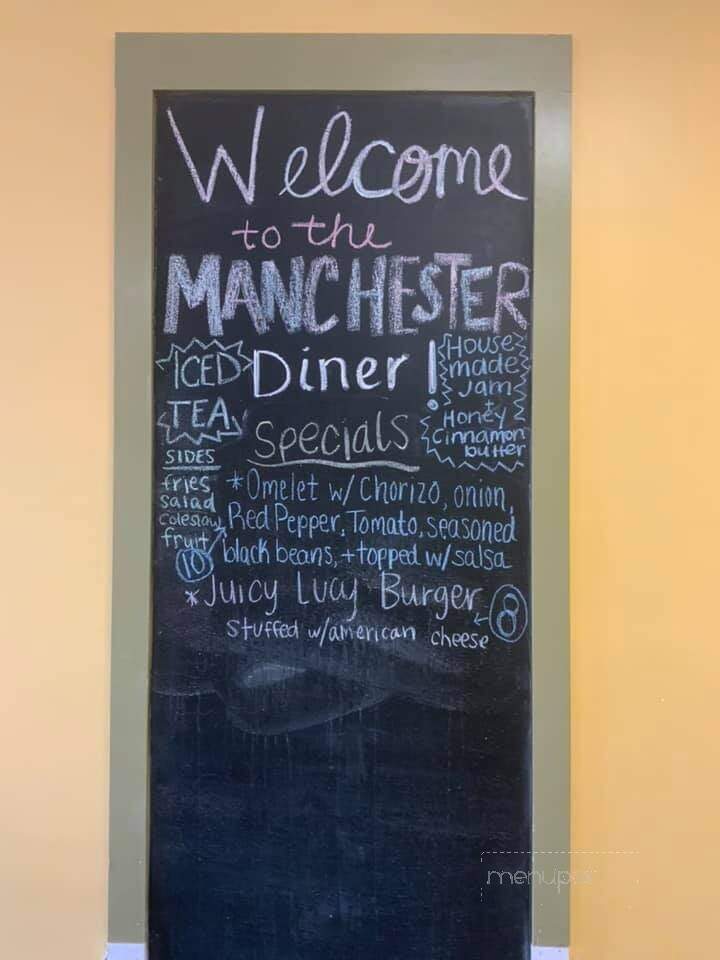 Welcome
to the
MANCHESTER
Diner!
ICED
TEA
House
made
Jam
+
Honey
Cinnamon
butter
Specials
SIDES
fries
salad
coleslaw
fruit
*Omelet w/ Chorizo, onion,
Red Pepper, Tomato, seasoned
black beans, + topped w/ salsa
10
*Juicy Lucy Burger
8
stuffed w/american cheese